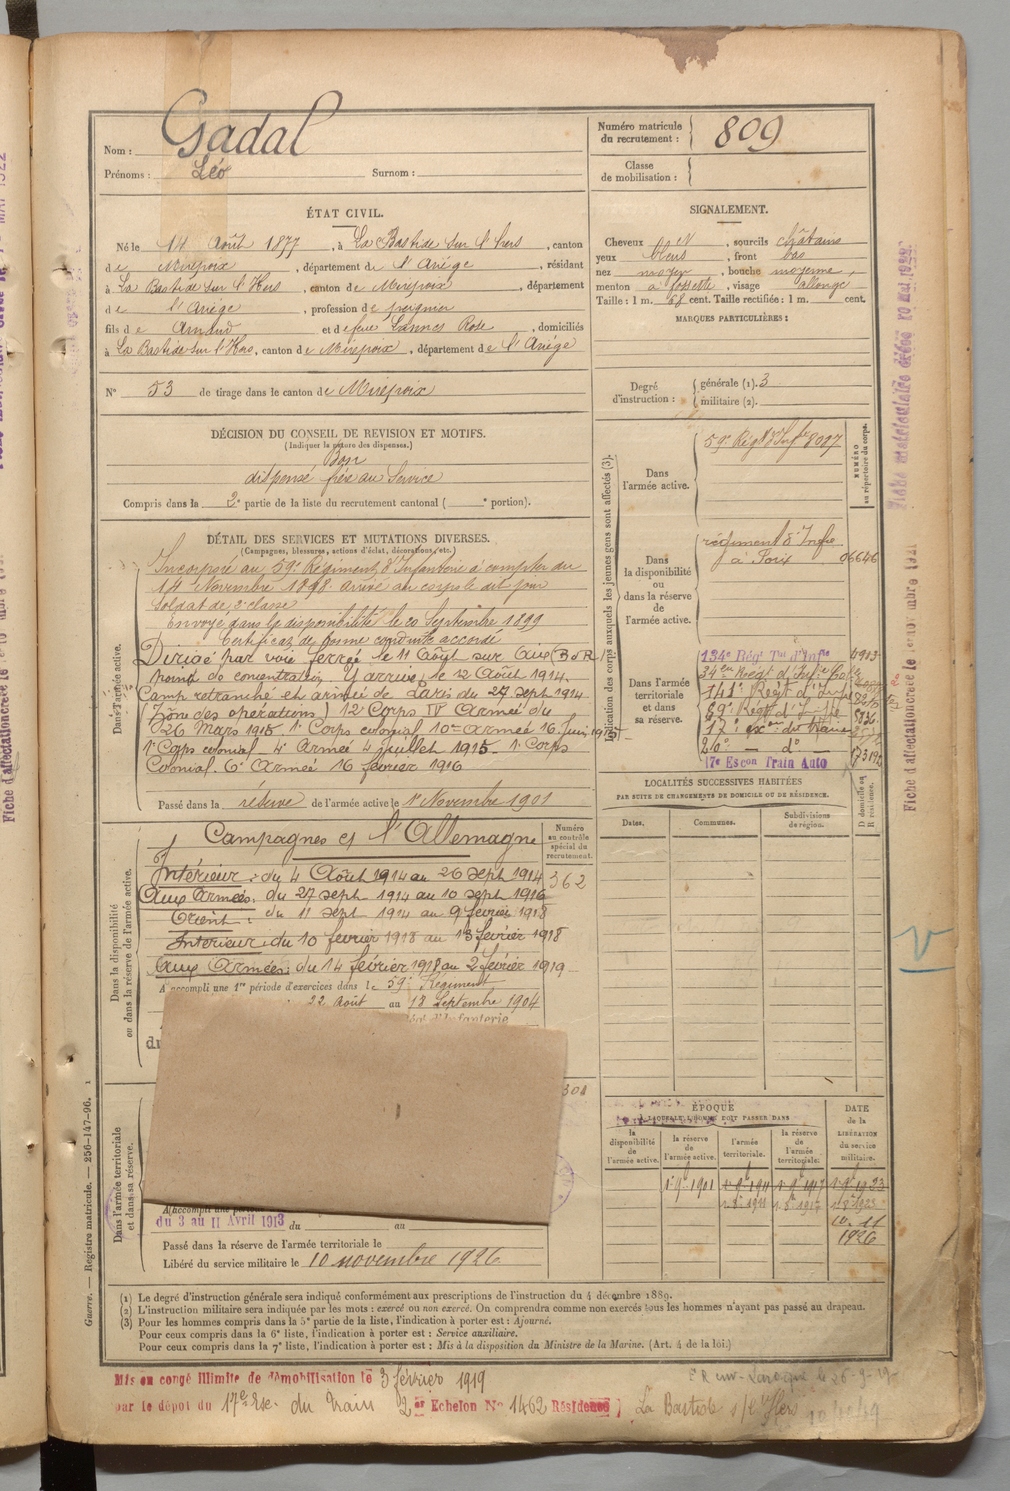 Nom : Gadal
Prénoms : Léo Surnom :
Numéro matricule
du recrutement : 809
Classe
de mobilisation :
ÉTAT CIVIL.
Né le 14 Août 1877, à La Bastide sur l'Hers, canton
de Mirepoix, département de l'Ariège, résidant
à La Bastide sur l'Hers, canton de Mirepoix, département
de l'Ariège, profession de peignier
fils de Arnaud et de feue Lannes Rose, domiciliés
à La Bastide sur l'Hers, canton de Mirepoix, département de l'Ariège
N° 53 de tirage dans le canton de Mirepoix
SIGNALEMENT.
Cheveux et, sourcils châtains
yeux bleus, front bas
nez moyen, bouche moyenne,
menton à fossette, visage allongé
Taille : 1 m. 68 cent. Taille rectifiée : 1 m. cent.
MARQUES PARTICULIÈRES :
Degré
d'instruction :
générale (1). 3
militaire (2).
DÉCISION DU CONSEIL DE REVISION ET MOTIFS.
(Indiquer la nature des dispenses.)
Bon
dispensé frère au Service
Compris dans la 2e partie de la liste du recrutement cantonal ( e portion).
DÉTAIL DES SERVICES ET MUTATIONS DIVERSES.
(Campagnes, blessures, actions d'éclat, décorations, etc.)
Dans l'armée active.
Incorporé au 59e Régiment d'Infanterie à compter du
14 Novembre 1898 arrivé au corps le dit jour
Soldat de 2e classe
Envoyé dans la disponibilité le 20 Septembre 1899
Certificat de bonne conduite accordé
Dirigé par voie ferrée le 11 Août sur Aux (B d R)
point de concentration. Y arrivé le 12 Août 1914.
Camp retranché et armée de Paris du 27 Sept 1914
(Zône des opérations) 12 Corps IV Armée du
26 Mars 1915. 1e Corps colonial 10me Armée 16 Juin 1915
1e Corps colonial - 4e Armée 4 juillet 1915. 1e Corps
Colonial. 6e Armée 16 février 1916
Passé dans la réserve de l'armée active le 1er Novembre 1901
Indication des corps auxquels les jeunes gens sont affectés (3).
NUMÉRO
au répertoire du corps.
Dans
l'armée active.
59e Régt d'Infte 8097
Dans
la disponibilité
ou dans
la réserve
de
l'armée active.
régiment d'Infie
à Foix 06646
Dans l'armée
territoriale
et dans
sa réserve.
134e Régt Tal d'Infie 4913
141e Régt d'Infie
89e Régt d'Infie
17e Escon Train Auto
LOCALITÉS SUCCESSIVES HABITÉES
PAR SUITE DE CHANGEMENTS DE DOMICILE OU DE RÉSIDENCE.
Dates. Communes. Subdivisions
de région. D domicile ou
R résidence.
Dans la disponibilité
ou dans la réserve de l'armée active.
Campagnes cs l'Allemagne
Numéro
au contrôle
spécial du
recrutement.
362
Intérieur : du 4 Août 1914 au 26 Sept 1914
Aux Armées : du 27 Sept 1914 au 10 Sept 1916
Orient : du 11 Sept 1914 au 9 février 1918
Intérieur du 10 février 1918 au 13 février 1918
Aux Armées : du 14 février 1918 au 2 février 1919
A accompli une 1re période d'exercices dans le 59e Régiment
22 Août au 18 Septembre 1904
Régt d'Infanterie
du
301
Dans l'armée territoriale
et dans sa réserve.
A accompli une période
du 3 au 11 Avril 1913 du au
Passé dans la réserve de l'armée territoriale le
Libéré du service militaire le 10 novembre 1926
ÉPOQUE
À LAQUELLE L'HOMME DOIT PASSER DANS
la
disponibilité
de
l'armée active.
la réserve
de
l'armée active.
l'armée
territoriale.
la
réserve
de
l'armée
territoriale.
DATE
de la
LIBÉRATION
du service
militaire.
1r 9e 1901 1r 9e 1911 1r 9e 1917 1r 9e 1923
1r 8e 1911 1r 8e 1917 1r 8e 1923
10. 11
1926
Guerre. — Registre matricule. — 256-147-96. 1
(1) Le degré d'instruction générale sera indiqué conformément aux prescriptions de l'instruction du 4 décembre 1889.
(2) L'instruction militaire sera indiquée par les mots : exercé ou non exercé. On comprendra comme non exercés tous les hommes n'ayant pas passé au drapeau.
(3) Pour les hommes compris dans la 5e partie de la liste, l'indication à porter est : Ajourné.
Pour ceux compris dans la 6e liste, l'indication à porter est : Service auxiliaire.
Pour ceux compris dans la 7e liste, l'indication à porter est : Mis à la disposition du Ministre de la Marine. (Art. 4 de la loi.)
Mis en congé illimité de démobilisation le 3 février 1919
par le dépôt du 17e Esc. du Train 2e Echelon N° 1462 Résidence La Bastide s/l'Hers